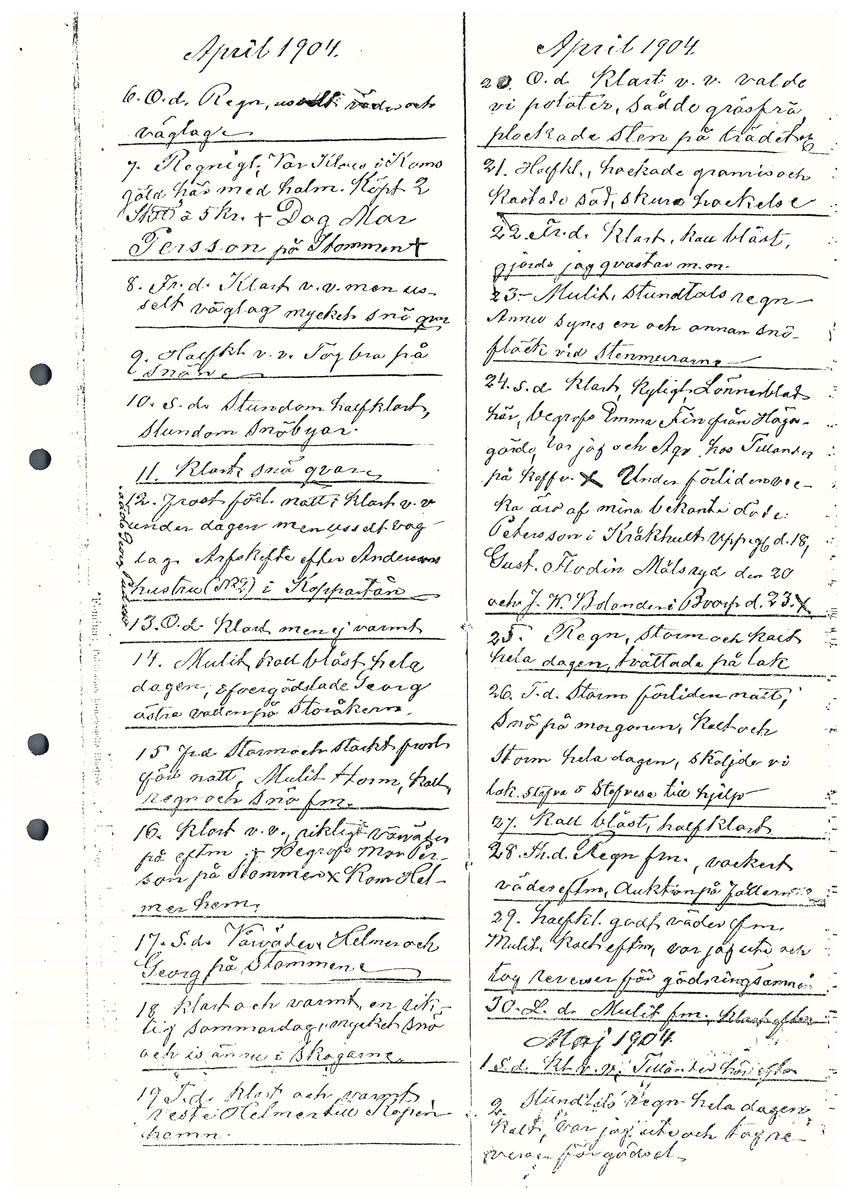 April 1904.
6. O.d. Regn, usselt väder och
väglag
7. Regnigt, Var Klaus i Koms
här med halm. Köpt 2
à 5 kr. + Dog Mar
Persson på Stommen +
8. Fr.d. Klart v.v. men us-
selt väglag mycket snö qvar
9. Halfkl v.v. Tog bra på
snön
10. S.d. Stundom halfklart,
stundom snöbyar.
11. Klart snö qvar
12. Frost förl. natt, klart v.v
under dagen men usselt väg-
lag. Arfskifte efter Anderssons
hustru (N2) i Koppartån
13. O.d. Klart men ej varmt
14. Mulit, kall blåst hela
dagen, öfvergödslade Georg
östra vaden på Storåkern.
15 Fr.d. Storm och starkt
natt, Mulit storm, kall
regn och snö fm.
16. Klart v.v., riktigt vårväder
på eftm. + Begrofs Mar Per-
son på Stommen x Kom Hel-
mer hem.
17. S.d. Vårväder, Helmer och
Georg på Stommen
18 Klart och varmt, en rik-
tig sommardag, mycket snö
och is ännu i skogarne.
19 T.d. Klart och varmt
reste Helmer till Köpen-
hamn.
April 1904.
20. O.d. Klart v.v. valde
vi potäter, sådde gräsfrö,
plockade sten på trädet
21. Halfkl., hackade granris och
kastade säd, skura hackelse
22. Fr.d. Klart, kall blåst,
gjorde jag qvastar m.m.
23.- Mulit, stundtals regn-
Ännu synes en och annan snö-
fläck vid stenmurarne
24. S.d. Klart, kyligt, Lönnerblad
här, begrofs Emma Fin från Höga-
gärde, var jag och Agv. hos Tillander
på kaffe. x Under förliden vec-
ka äro af mina bekanta döde:
Petersson i Kråkhult Uppeg. d. 18,
Gust. Flodin Målsryd den 20
och J. W. Bolander i Bvarp d. 23. x
25. Regn, storm och kallt
hela dagen, tvättade på lak
26. T.d. Storm förliden natt,
snö på morgonen, kallt och
storm hela dagen, sköljde vi
lak. Stefva o Stefvesa till hjelp
27. Kall blåst, halfklart
28. Th.d. Regn fm., vackert
väder eftm, Auktion på
29. halfkl. godt väder fm.
Mulit, kallt eftm, var jag ute och
tog reverser för gödningsämne
30. L.d. Mulit fm., klart eftm
Maj 1904.
1. S.d. Kl v.v., Tillander här eftm
2. Stundtals regn hela dagen
kallt, var jag ute och tog re-
verser för gödsel.